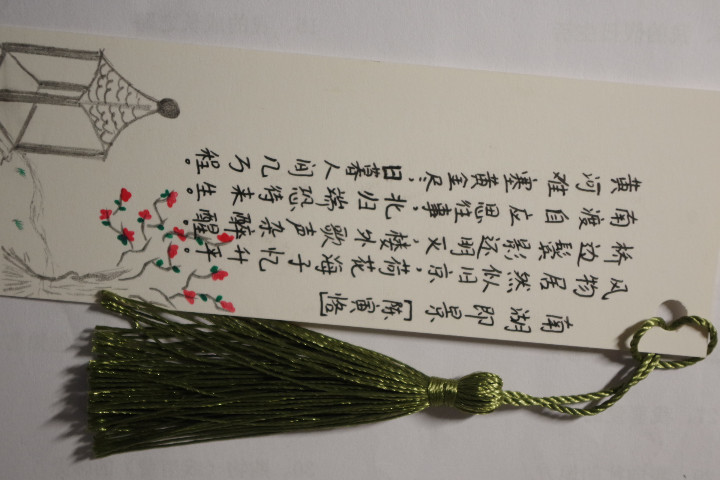 南湖即景
[陈寅恪]
风物居然似旧京，荷花海子忆升平。
桥边鬓影还明灭，楼外歌声杂醉醒。
南渡自应思往事，北归端恐待来生。
黄河难塞黄金尽，日暮人间几万程。